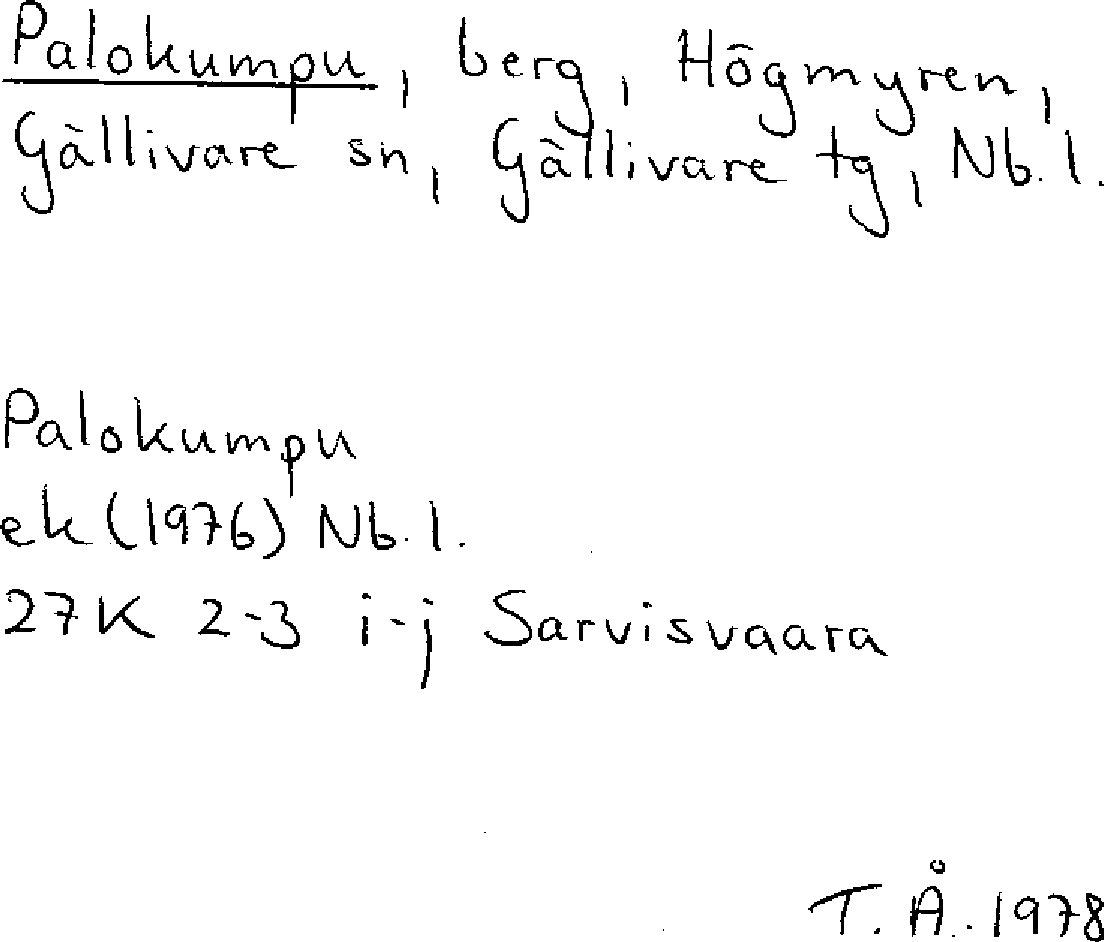 Palokumpu, berg, Högmyren,
Gällivare sn, Gällivare tg, Nb.l.
Palokumpu
ek (1976) Nb.l.
27K 2-3 i-j Sarvisvaara
T.Å. 1978